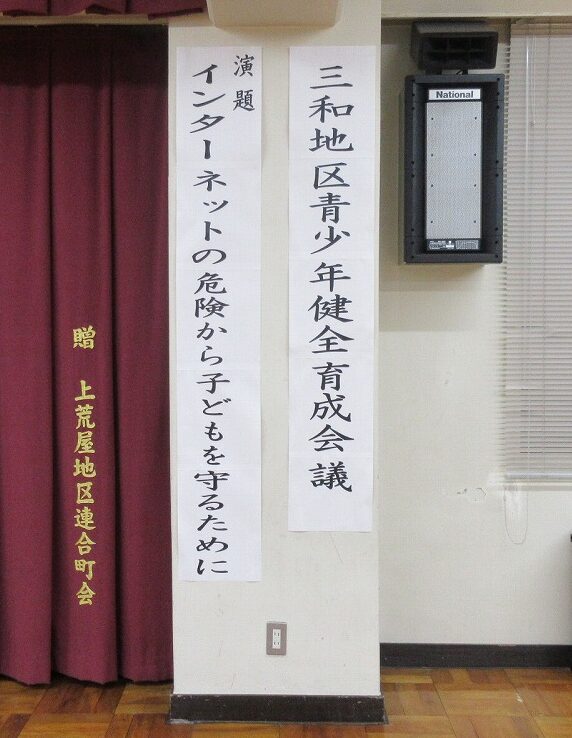 三和地区青少年健全育成会議
演題
インターネットの危険から子どもを守るために
贈 上荒屋地区連合町会
National